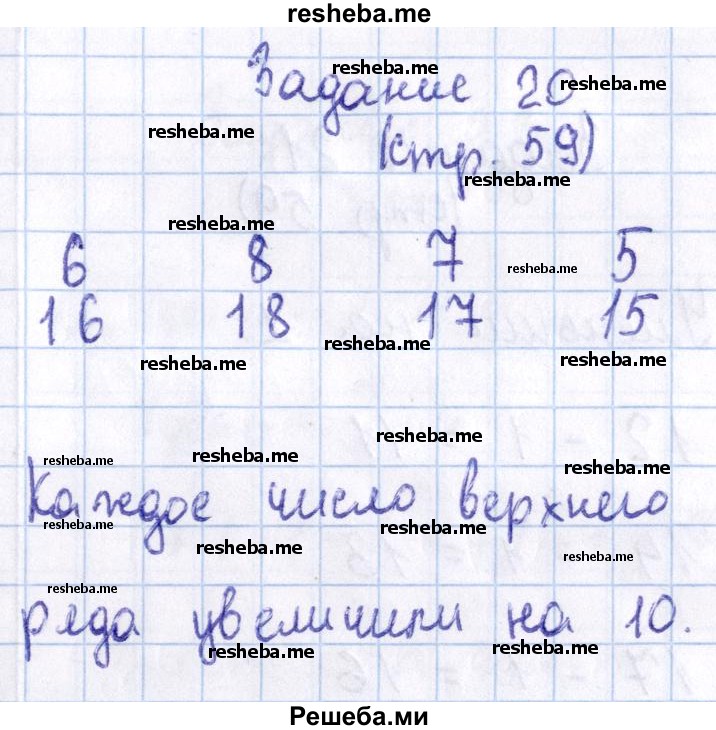 resheba.me
Задание 20
resheba.me resheba.me
resheba.me
(стр. 59)
resheba.me
resheba.me
6 8 7 5
resheba.me
16 18 17 15
resheba.me resheba.me resheba.me
resheba.me
resheba.me resheba.me resheba.me
Каждое число верхнего
resheba.me resheba.me
resheba.me resheba.me
resheba.me
ряда увеличили на 10.
resheba.me resheba.me
Решеба.ми